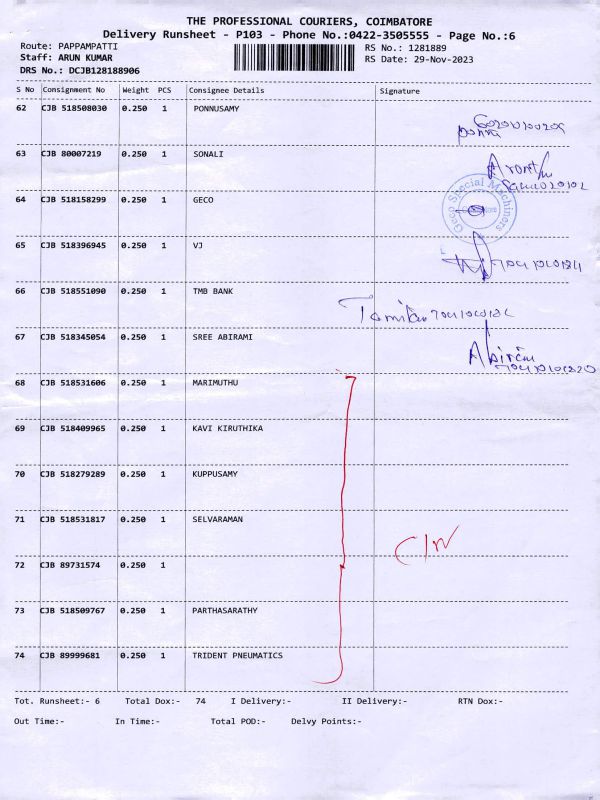 THE PROFESSIONAL COURIERS, COIMBATORE
Delivery Runsheet - P103 - Phone No.:0422-3505555 - Page No.:6
Route: PAPPAMPATTI
RS No.: 1281889
Staff: ARUN KUMAR
RS Date: 29-Nov-2023
DRS No.: DCJB128188906
S No Consignment No Weight PCS Consignee Details Signature
62 CJB 518508030 0.250 1 PONNUSAMY
63 CJB 80007219 0.250 1 SONALI
64 CJB 518158299 0.250 1 GECO
Geco Special Machiners
65 CJB 518396945 0.250 1 VJ
66 CJB 518551090 0.250 1 TMB BANK
67 CJB 518345054 0.250 1 SREE ABIRAMI
68 CJB 518531606 0.250 1 MARIMUTHU
69 CJB 518409965 0.250 1 KAVI KIRUTHIKA
70 CJB 518279289 0.250 1 KUPPUSAMY
71 CJB 518531817 0.250 1 SELVARAMAN
72 CJB 89731574 0.250 1
73 CJB 518509767 0.250 1 PARTHASARATHY
74 CJB 89999681 0.250 1 TRIDENT PNEUMATICS
Tot. Runsheet:- 6 Total Dox:- 74 I Delivery:- II Delivery:- RTN Dox:-
Out Time:- In Time:- Total POD:- Delvy Points:-